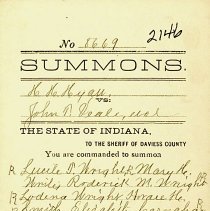 2146
No 8669
SUMMONS.
H. H. Hyatt
vs:
John B. Veale, et al
THE STATE OF INDIANA,
TO THE SHERIFF OF DAVIESS COUNTY
You are commanded to summon
Lucile T. Wright, Mary H.
White, Roderick M. Wright
Lydina Wright, Horace H.
Smith, Elizabeth